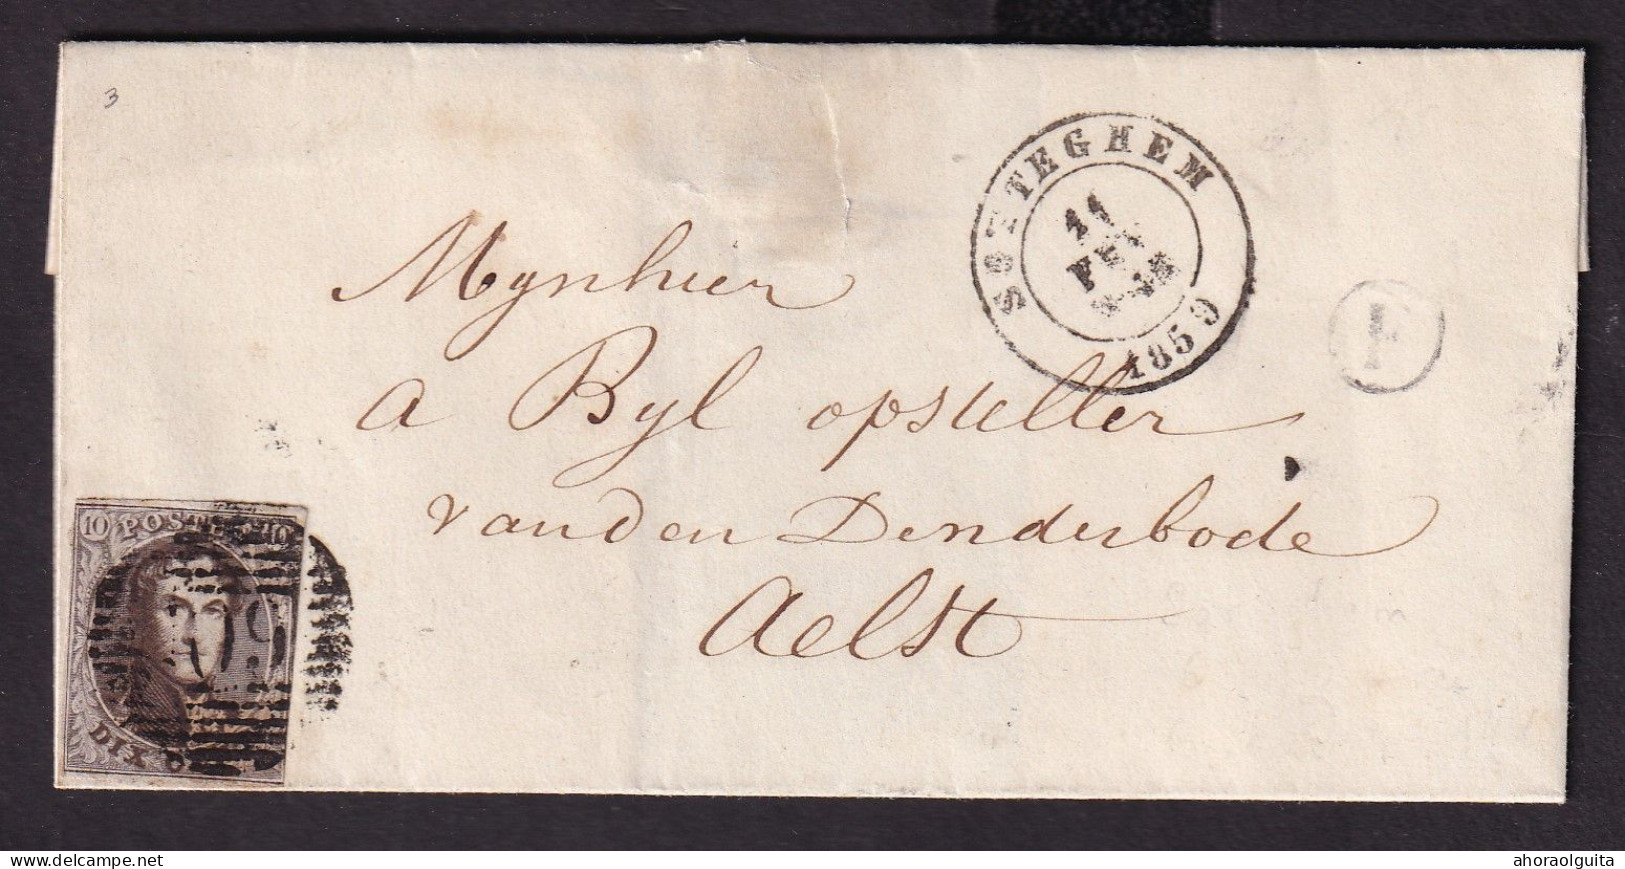 3
SOTTEGHEM
11
FEV
1859
Mynhier
A Byl opsteller
van den Denderbode
Aelst
10 POSTES 10
DIX
www.delcampe.net
ahoraolguita